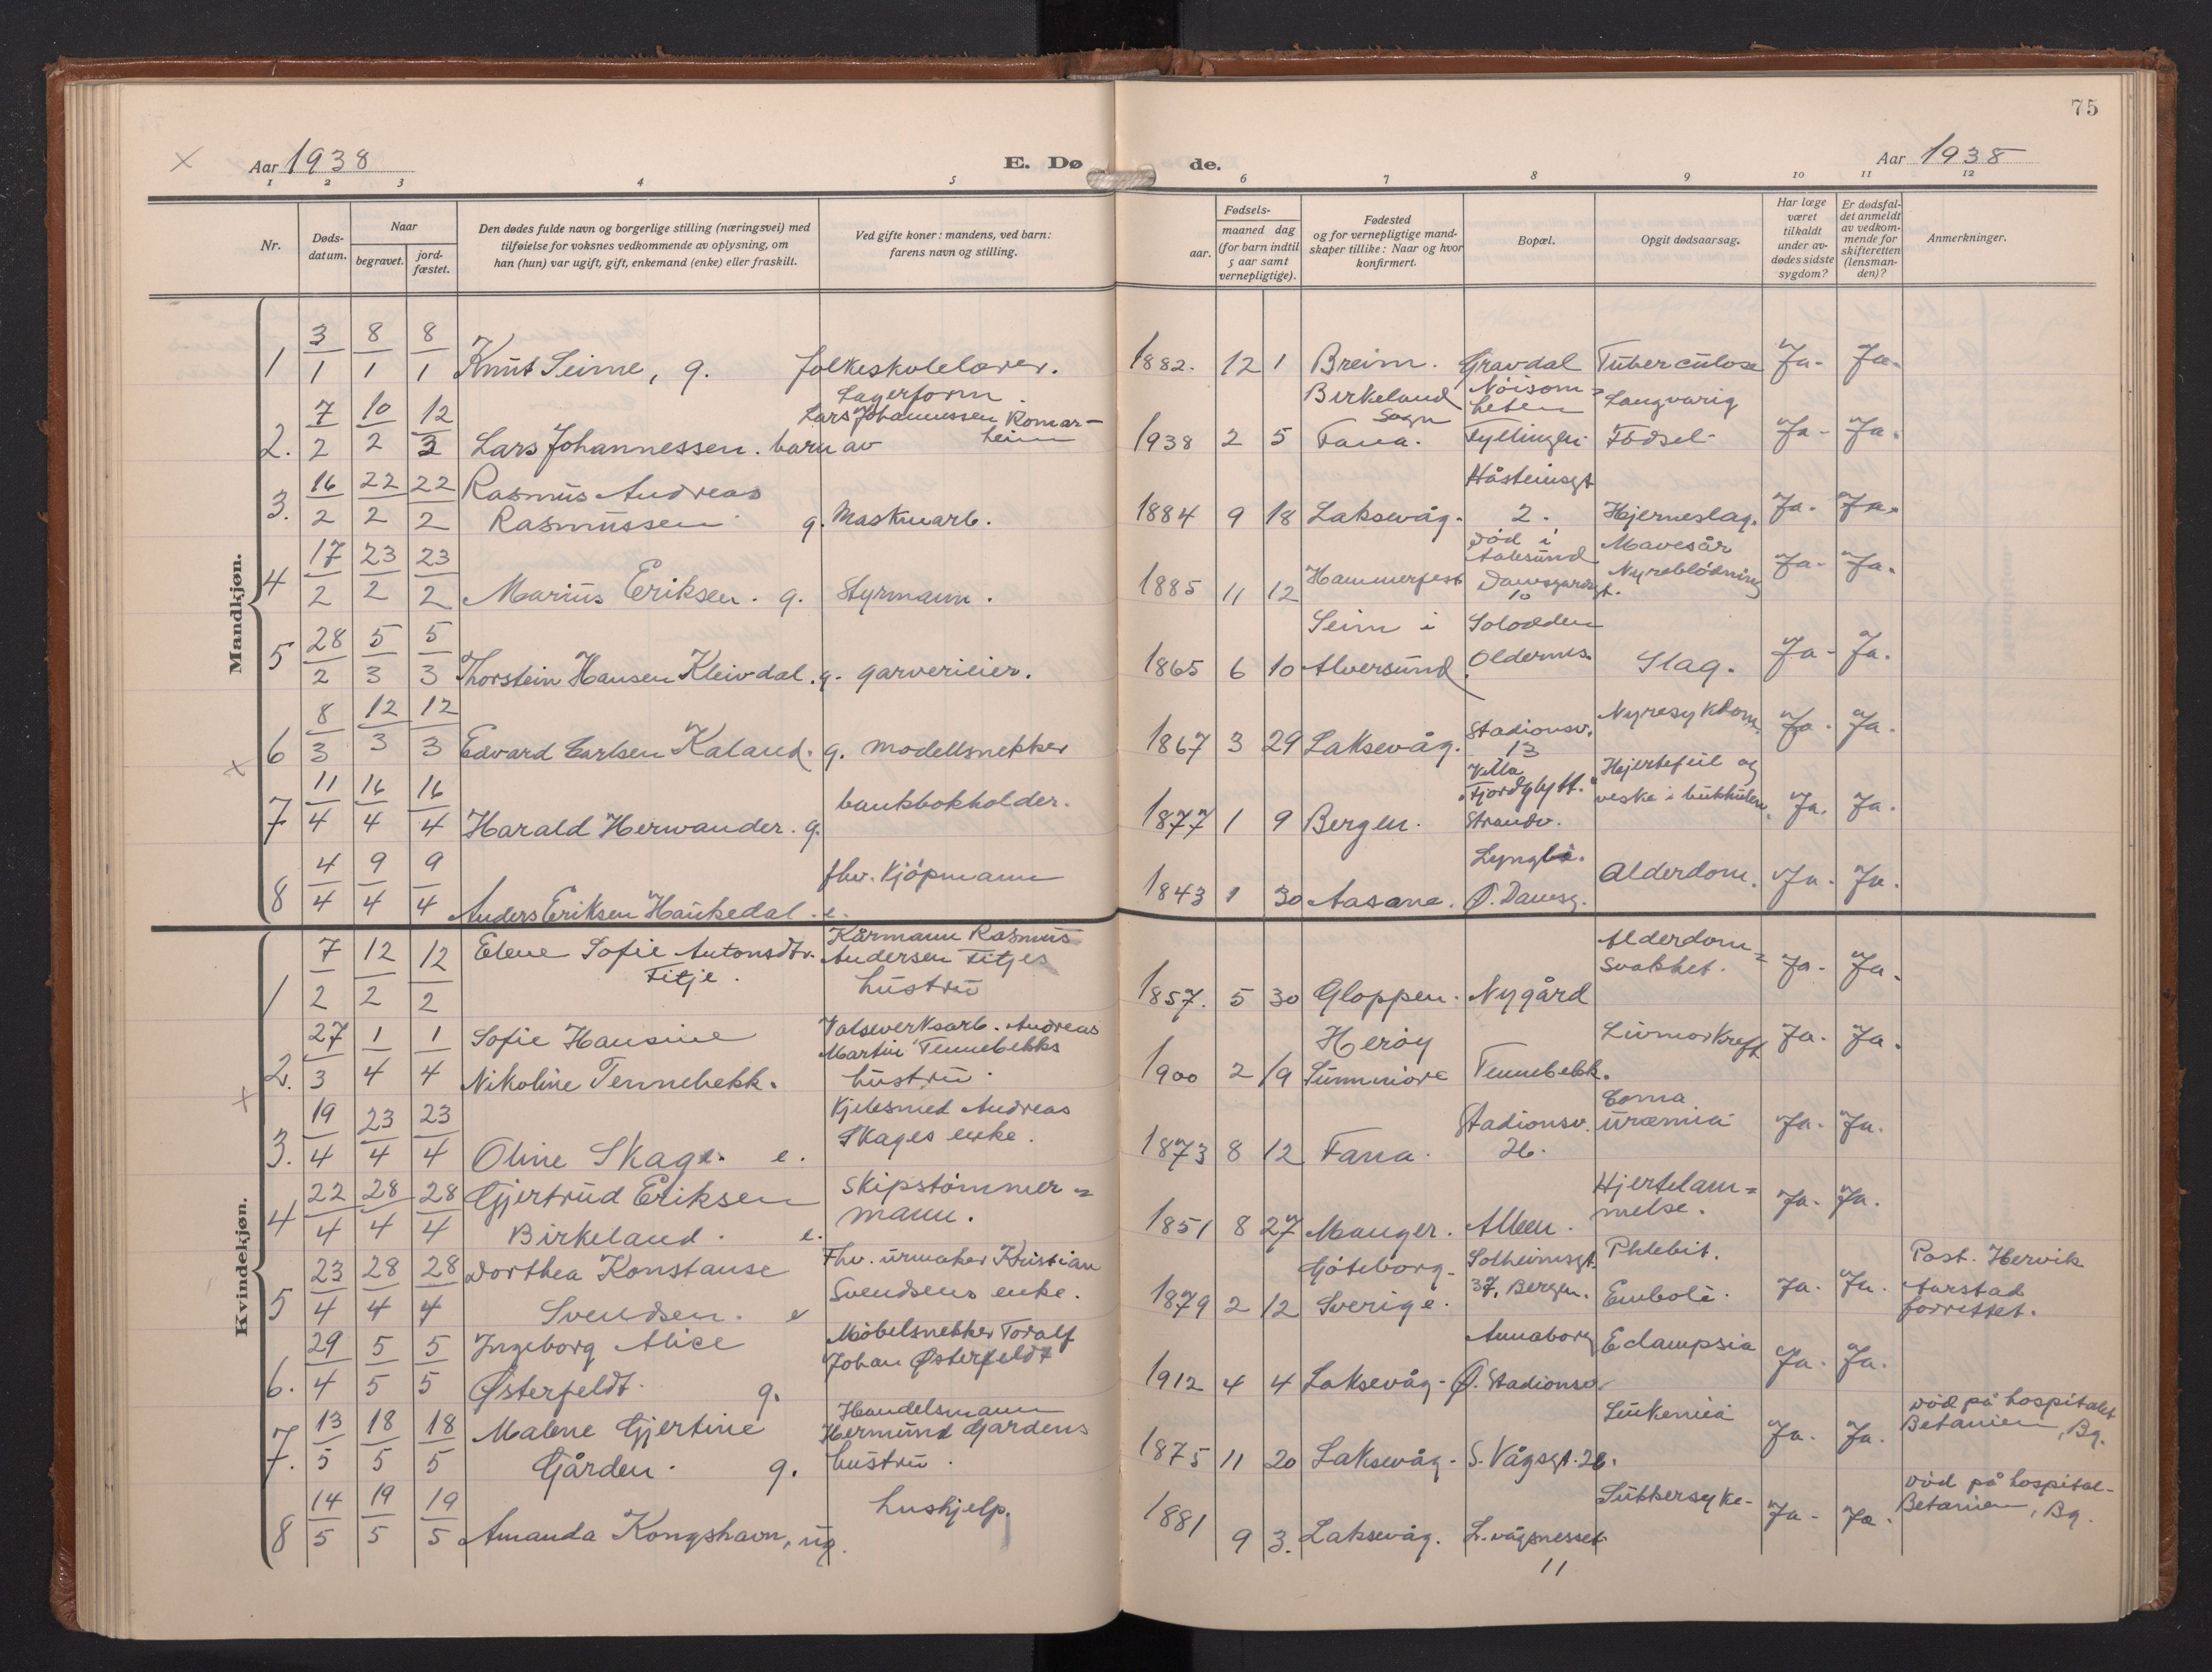 75
Aar 1938
E. Døde.
Aar 1938
1 2 3 4 5 6 7 8 9 10 11 12
Nr.
Døds-datum.
Naar
begravet.
jord-fæstet.
Den dødes fulde navn og borgerlige stilling (næringsvei) med
tilføielse for voksnes vedkommende av oplysning, om
han (hun) var ugift, gift, enkemand (enke) eller fraskilt.
Ved gifte koner: mandens, ved barn:
farens navn og stilling.
Fødsels-
aar.
maaned dag
(for barn indtil
5 aar samt
vernepligtige).
Fødested
og for vernepligtige mand-
skaper tillike: Naar og hvor
konfirmert.
Bopæl.
Opgit dødsaarsag.
Har læge
været
tilkaldt
under av-
dødes sidste
sygdom?
Er dødsfal-
det anmeldt
av vedkom-
mende for
skifteretten
(lensman-
den)?
Anmerkninger.
Mandkjøn.
1 3/1 8/1 8/1 Knut Seime, g. folkeskolelærer. 1882. 12 1 Breim. Gravdal Tuberculose Ja- Ja-
2. 7/2 10/2 12/3 Lars Johannessen. barn av
Lagerform.
Lars Johannessen Romar-
heim
1938 2 5
Birkeland
Sogn
Fana.
Nöisom-
heten
Fyllingen.
Langvarig
Födsel.
Ja- Ja.
3. 16/2 22/2 22/2 Rasmus Andreas
Rasmussen g. Maskinarb. 1884 9 18 Laksevåg.
Håsteinsgt
2.
Hjerneslag. Ja- Ja.
4 17/2 23/2 23/2 Marius Eriksen. g. Styrmann. 1885 11 12 Hammerfest
död i
Aalesund
Damsgardsgt.
10
Mavesår
Nyreblödning
Ja- Ja.
5 28/2 5/3 5/3 Thorstein Hansen Kleivdal. g. garverieier. 1865 6 10
Seim i
Alversund.
Soloedden
Oldernes.
Slag. Ja- Ja.
6 8/3 12/3 12/3 Edvard Carlsen Kaland. g. modellsnekker 1867 3 29 Laksevåg.
Stadionsv.
13
Nyresykdom. Ja- Ja.
7 11/4 16/4 16/4 Harald Herwander. g. bankbokholder. 1877 1 9 Bergen.
Villa
"Fjordglytt."
Strandv.
Hjertefeil og
veske i bukhulen.
Ja. Ja.
8 4/4 9/4 9/4 Anders Eriksen Haukedal. e. fhv. Kjöpmann 1843 1 30 Aasane.
Lyngbö.
Ø. Damsg.
Alderdom. Ja- Ja.
Kvindekjøn.
1 7/2 12/2 12/2 Elene Sofie Antonsdtr.
Fitje.
Kårmann Rasmus
Andersen Fitjes
hustru
1857. 5 30 Gloppen. Nygård
Alderdom=
svakhet.
Ja- Ja-
2. 27/3 1/4 1/4 Sofie Hansine
Nikoline Tennebekk.
Valseverksarb. Andreas
Martin Tennebekks
hustru.
1900 2 19
Heröy
Sunnmöre
Tennebekk.
Livmorkreft Ja- Ja.
3. 19/4 23/4 23/4 Oline Skage. e.
Kjelesmed Andreas
Skages enke.
1873 8 12 Fana.
Stadionsv.
26.
Coma
uræmia
Ja- Ja.
4 22/4 28/4 28/4 Gjertrud Eriksen
Birkeland. e.
Skipstömmer=
mann.
1851 8 27 Manger. Alléen.
Hjertelam=
melse.
Ja- Ja.
5 23/4 28/4 28/4 Dorthea Konstanse
Svendsen. e
Fhv. urmaker Kristian
Svendsens enke.
1879 2 12
Göteborg-
Sverige.
Solheimsgt.
37, Bergen.
Phlebit.
Emboli.
Ja- Ja.
Past. Hervik
Aarstad
forrettet.
6. 29/4 5/5 5/5 Ingeborg Alice
Østerfeldt. g.
Möbelsnekker Toralf
Johan Østerfeldt
1912 4 4 Laksevåg-
Annaborg
Ø. Stadionsv.
Eclampsia Ja- Ja.
7. 13/5 18/5 18/5 Malene Gjertine
Gården. g.
Handelsmann
Hermund Gardens
hustru.
1875 11 20 Laksevåg- S. Vågsgt. 26. Leukemia Ja- Ja.
död på hospitalet
Betanien, Bg.
8 14/5 19/5 19/5 Amanda Kongshavn, ug. hushjelp. 1881 9 3. Laksevåg.
L.vågsnesset
11
Sukkersyke- Ja- Ja.
död på hospital-
Betanien, Bg.